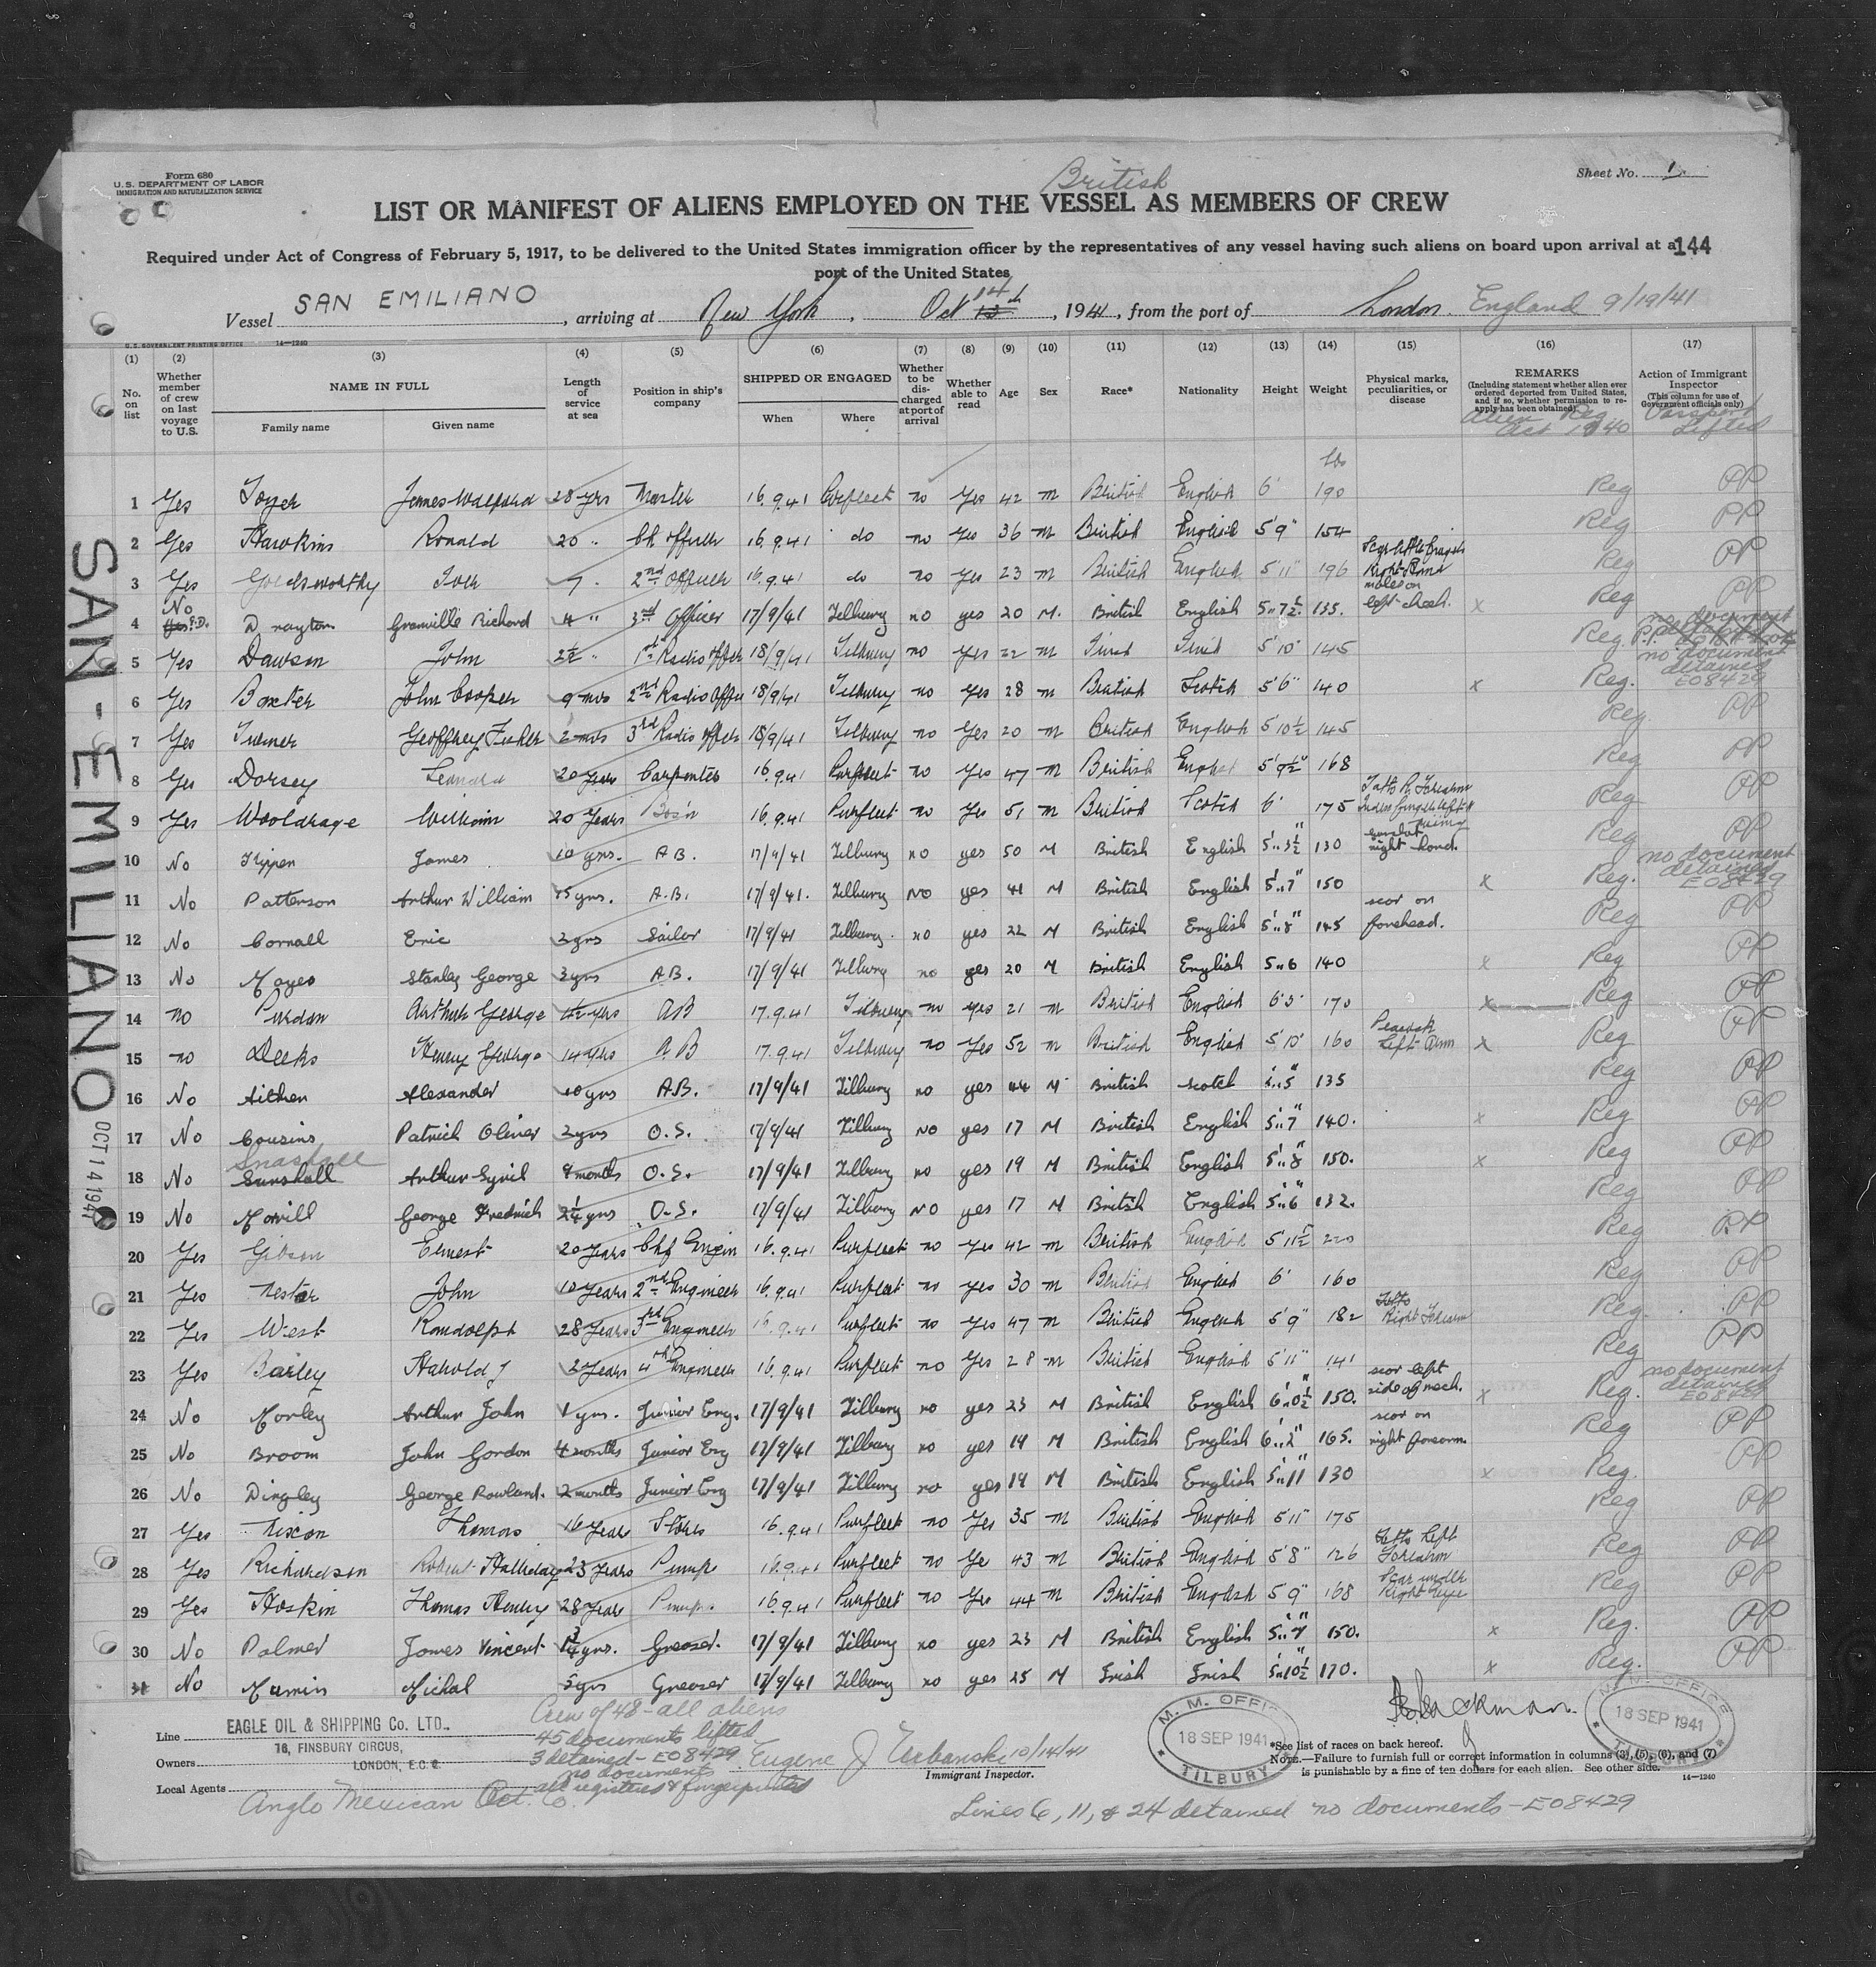 Form 680
U.S. DEPARTMENT OF LABOR
IMMIGRATION AND NATURALIZATION SERVICE
Sheet No. 1
British
LIST OR MANIFEST OF ALIENS EMPLOYED ON THE VESSEL AS MEMBERS OF CREW
Required under Act of Congress of February 5, 1917, to be delivered to the United States immigration officer by the representatives of any vessel having such aliens on board upon arrival at a 144
port of the United States
Vessel SAN EMILIANO, arriving at New York, Oct 14th, 1941, from the port of London. England 9/19/41
U.S. GOVERNMENT PRINTING OFFICE 14—1240
(1) (2) (3) (4) (5) (6) (7) (8) (9) (10) (11) (12) (13) (14) (15) (16) (17)
No. on list
Whether member of crew on last voyage to U.S.
NAME IN FULL
Family name Given name
Length of service at sea
Position in ship's company
SHIPPED OR ENGAGED
When Where
Whether to be discharged at port of arrival
Whether able to read
Age
Sex
Race*
Nationality
Height
Weight
Physical marks, peculiarities, or disease
REMARKS
(Including statement whether alien ever ordered deported from United States, and if so, whether permission to reapply has been obtained)
Alien Reg Act 1940
Action of Immigrant Inspector
(This column for use of Government officials only)
Passport Lifted
lbs
1 Yes James 28 yrs Master 16.9.41 Purfleet no Yes 42 m British English 6' 190 Reg PP
2 Yes Hawkins Ronald 20 " Ch Officer 16.9.41 do no Yes 36 m British English 5'9" 154 Reg PP
3 Yes Goldsworthy 7 " 2nd Officer 16.9.41 do no Yes 23 m British English 5'11" 196 Reg PP
4 No Drayton Granville Richard 4 " 3rd Officer 17/9/41 Tilbury no yes 20 M. British English 5"7½ 135. moles on left cheek. x Reg PP
5 Yes Dawson John 2½ " 1st Radio Officer 18/9/41 Tilbury no Yes 22 m 5'10" 145 Reg
6 Yes Baxter John Cooper 9 mos 2nd Radio Officer 18/9/41 Tilbury no Yes 28 m British Scotch 5'6" 140 x Reg. no document detained E08429
7 Yes Turner Geoffrey 2 mos 3rd Radio Officer 18/9/41 Tilbury no Yes 20 m British English 5'10½ 145 Reg PP
8 Yes Dorsey Leonard 20 years Carpenter 16.9.41 Purfleet no Yes 47 m British English 5'9½" 168 Reg PP
9 Yes Wooldrage William 20 Years Bos'n 16.9.41 Purfleet no Yes 51 m British Scotch 6' 175 Reg PP
10 No James 10 yrs. A.B. 17/9/41 Tilbury no yes 50 M British English 5"3½ 130 right hand. Reg PP
11 No Patterson Arthur William 15 yrs. A.B. 17/9/41. Tilbury No yes 41 M British English 5"7" 150 x Reg. no document detained E08429
12 No Cornall Eric 3 yrs Sailor 17/9/41 Tilbury. no yes 22 M British English 5"8" 145 scar on forehead. Reg PP
13 No Mayes Stanley George 3 yrs A.B. 17/9/41 Tilbury no yes 20 M British English 5"6 140 x Reg PP
14 no Purdon Arthur George 1½ yrs AB 17.9.41 Tilbury no yes 21 m British English 170 x Reg PP
15 no Deeks Henry George 14 yrs AB 17.9.41 Tilbury no Yes 52 m British English 5'10" 160 Peacock Left Arm x Reg PP
16 No Aitken Alexander 10 yrs A.B. 17/9/41 Tilbury no yes 44 M British Scotch 5"5" 135 Reg PP
17 No Cousins, Patrick Oliver 3 yrs O.S. 17/9/41 Tilbury No yes 17 M British English 5"7" 140. x Reg PP
18 No Snashall Arthur Syril months O.S. 17/9/41 Tilbury no yes 19 M British English 5"8" 150. x Reg PP
19 No George Fredrick 2¼ yrs O.S. 17/9/41 Tilbury No yes 17 M British English 5"6" 132. Reg PP
20 Yes Gibson Ernest 20 years Chf Engin 16.9.41 Purfleet no Yes 42 m British English 5'11½ 220 Reg PP
21 Yes Nester John 10 years 2nd Engineer 16.9.41 Purfleet no Yes 30 m British English 6' 160 Reg PP
22 Yes West Randolph 28 Years 3rd Engineer 16.9.41 Purfleet no Yes 47 m British English 5'9" 182 Right Forearm Reg. PP
23 Yes Bailey Harold J 2 Years 4th Engineer 16.9.41 Purfleet no Yes 28 m British English 5'11" 141 Reg PP
24 No Morley Arthur John 1 yrs. Junior Eng. 17/9/41 Tilbury no yes 23 M British English 6"0½" 150. scar left side of neck. x Reg. no document detained E08429
25 No Broom John Gordon 4 months Junior Eng 17/9/41 Tilbury no yes 19 M British English 6"2" 165. scar on right forearm. Reg PP
26 No Dingley George Rowland. 2 months Junior Eng 17/9/41 Tilbury no yes 19 M British English 5"11" 130 x Reg. PP
27 Yes Nixon Thomas 16 Years 16.9.41 Purfleet no Yes 35 m British English 5'11" 175 Reg PP
28 Yes Richardson Robert Halliday 23 Years Pump 16.9.41 Purfleet no Ye 43 m British English 5'8" 126 Left Forearm Reg PP
29 Yes Hoskin Thomas Henry 28 Years Pump. 16.9.41 Purfleet no Yes 44 m British English 5'9" 168 Scar under Right Eye Reg PP
30 No Palmer James Vincent 1¾ yrs. Greaser. 17/9/41 Tilbury no yes 23 M British English 150. x Reg. PP
No Michal 5 yrs Greaser 17/9/41 Tilbury no yes 25 M Irish Irish 5"10½ 170. x Reg. PP
SAN - EMILIANO
OCT 14 1941
Line EAGLE OIL & SHIPPING Co. LTD.
Owners 16, FINSBURY CIRCUS,
LONDON, E.C.2.
Local Agents Anglo Mexican
Crew of 48 - all aliens
45 documents lifted
3 detained - E08429
no documents
all registered & fingerprinted
Eugene J Urbanski 10/14/41
Immigrant Inspector.
M. M. OFFICE
18 SEP 1941
TILBURY
M. M. OFFICE
18 SEP 1941
TILBURY
*See list of races on back hereof.
NOTE.—Failure to furnish full or correct information in columns (3), (5), (6), and (7)
is punishable by a fine of ten dollars for each alien. See other side.
14—1240
Lines 6, 11, & 24 detained no documents - E08429